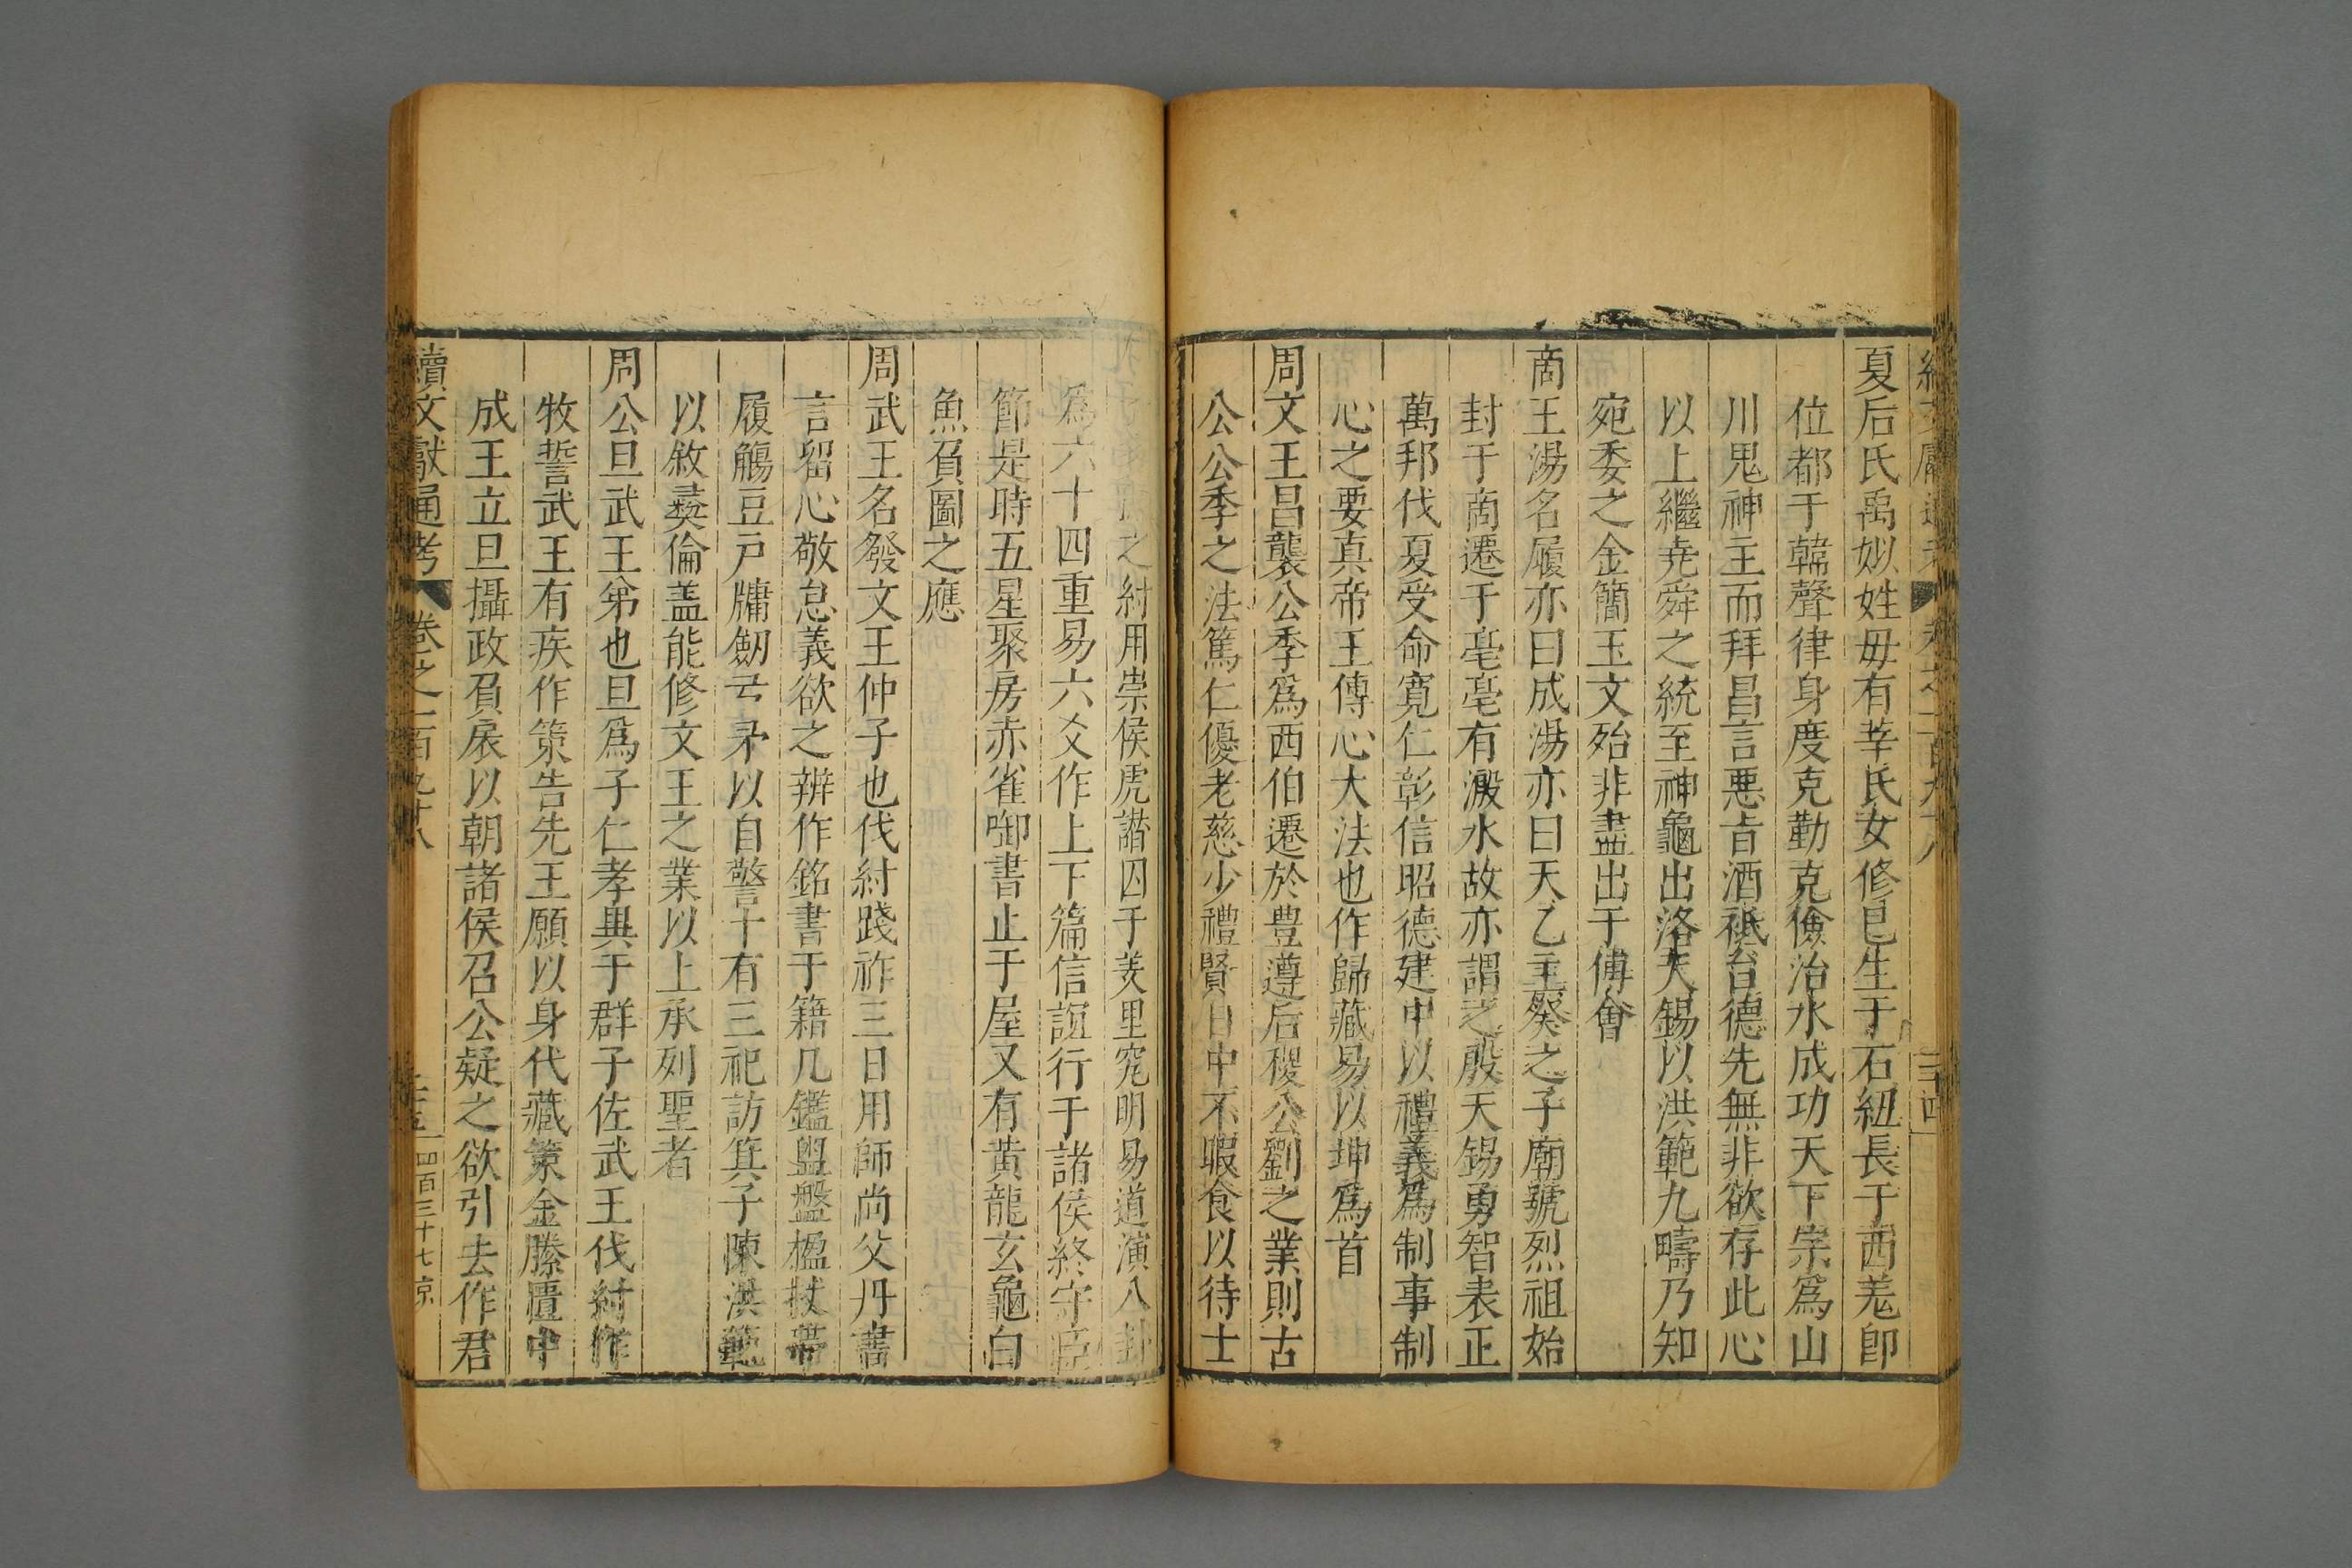 夏后氏禹姒姓毋有莘氏女修巳生于石紐長于西羌即
位都于韓聲律身度克勤克儉治水成功天下宗爲山
川鬼神主而拜昌言悪旨酒祗台德先無非欲存此心
以上繼尭舜之統至神龜出洛天錫以洪範九疇乃知
宛委之金簡玉文殆非盡出于傅會
商王湯名履亦曰成湯亦曰天乙主癸之子廟號烈祖始
封于商遷于亳亳有濦水故亦謂之殷天錫勇智表正
萬邦伐夏受命寛仁彰信昭德建中以禮義爲制事制
心之要真帝王傳心大法也作歸藏易以坤爲首
周文王昌襲公季爲西伯遷於豊遵后稷公劉之業則古
公公季之法篤仁優老慈少禮賢日中不暇食以待士
之紂用崇侯虎譖囚于羑里究明易道演八卦
爲六十四重易六爻作上下篇信誼行于諸侯終守臣
節是時五星聚房赤雀啣書止于屋又有黄龍玄龜白
魚負圖之應
周武王名發文王仲子也伐紂踐祚三日用師尚父丹書
言留心敬怠義欲之辨作銘書于籍几鑑盥盤楹杖帶
履觴豆戸牖劒弓矛以自警十有三祀訪箕子陳洪範
以敘彛倫盖能修文王之業以上承列聖者
周公旦武王弟也旦爲子仁孝異于群子佐武王伐紂作
牧誓武王有疾作策告先王願以身代藏策金縢匱中
成王立旦攝政負扆以朝諸侯召公疑之欲引去作君
續文獻通考 卷之一百九十八 二十五 四百三十七 京